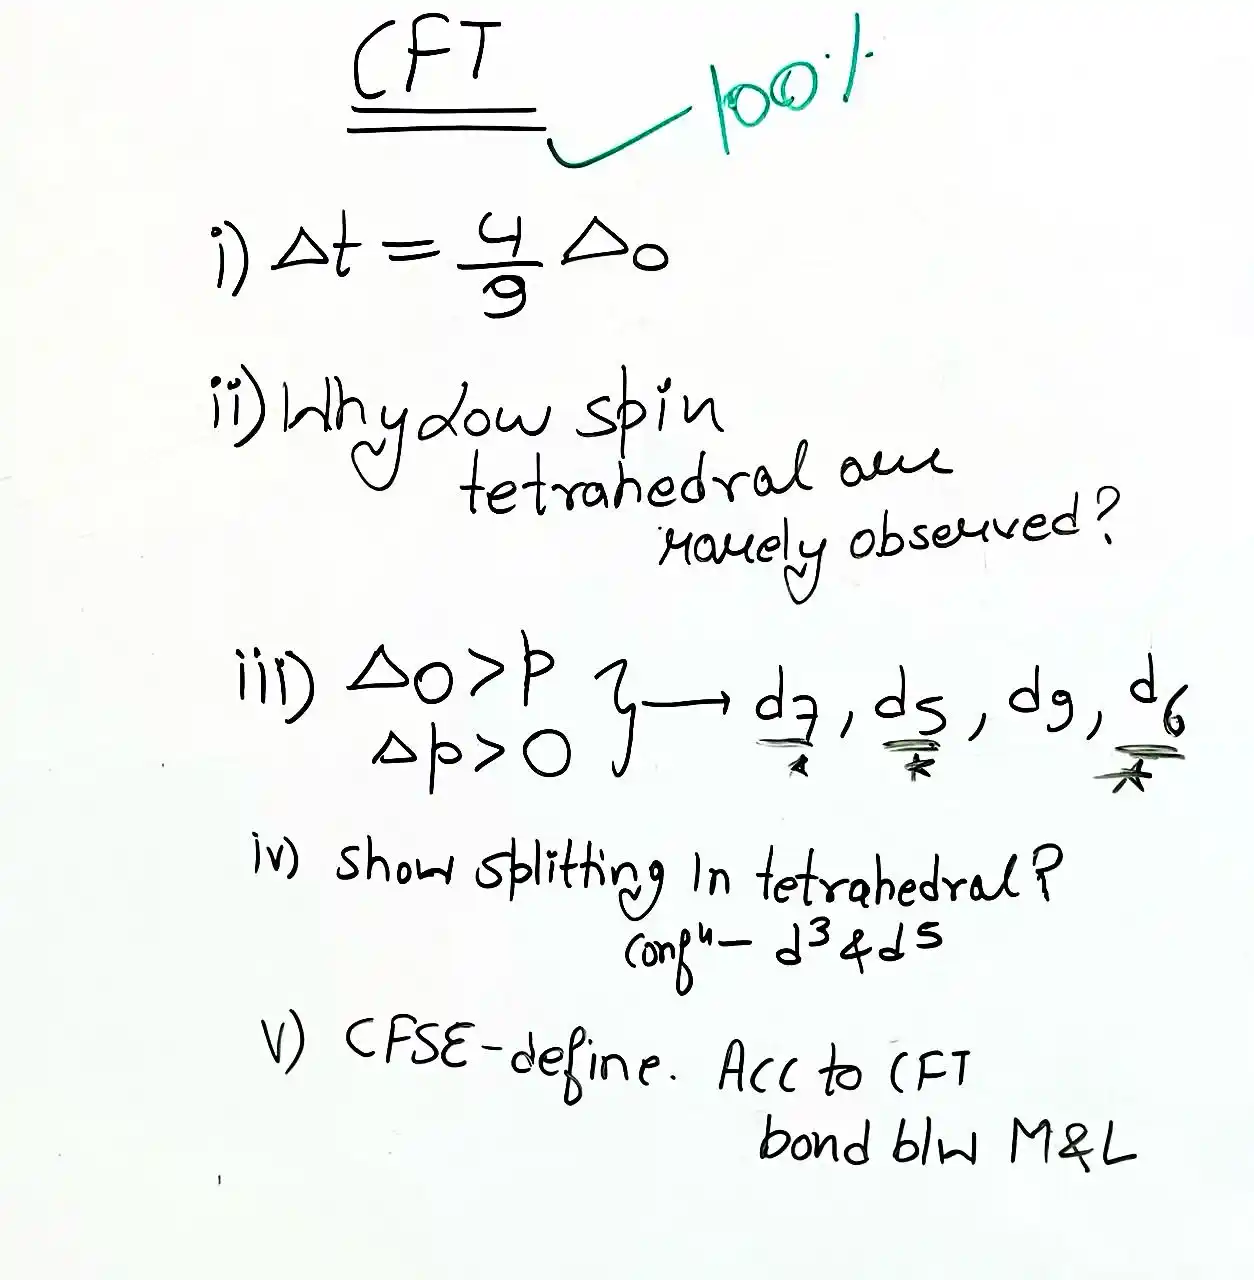 CFT
100%
i) Δt = 4/9 Δo
ii) Why low spin
tetrahedral are
rarely observed?
iii) Δo > p } → d7, d5, d9, d6
Δp > O
iv) show splitting in tetrahedral?
confⁿ – d³ & d⁵
v) CFSE - define. Acc to CFT
bond b/w M&L